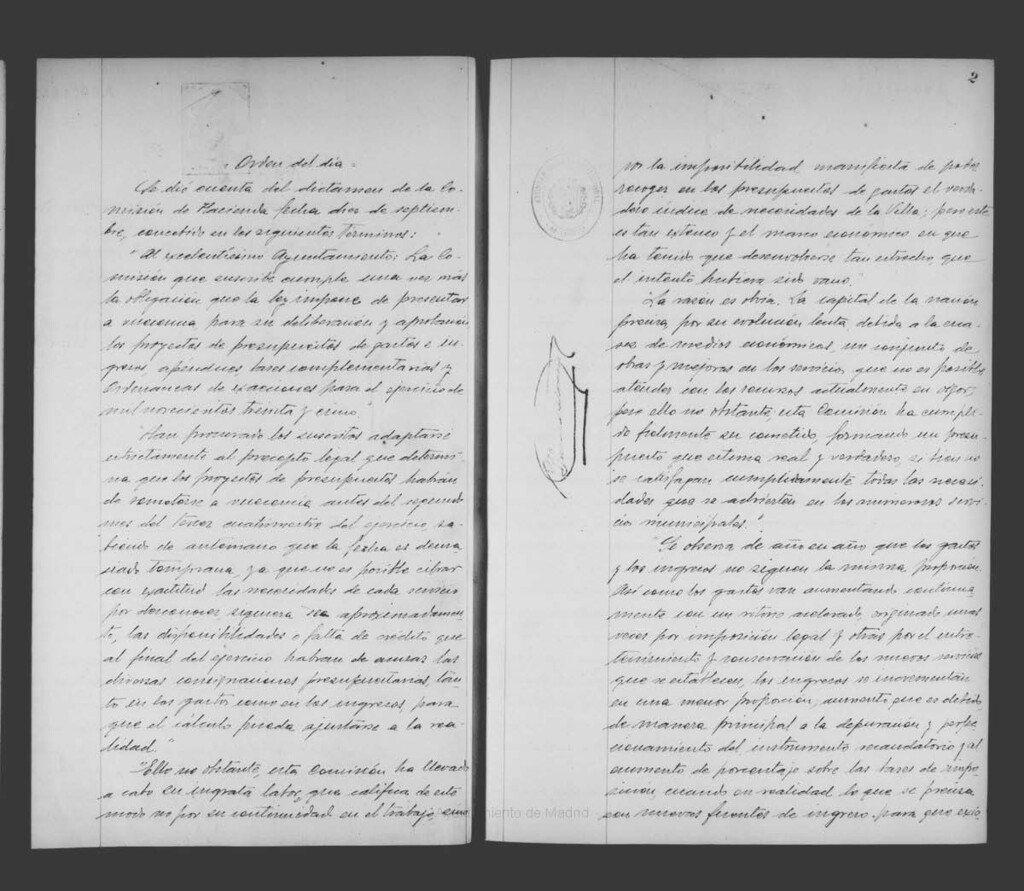 - Orden del dia -
Se dió cuenta del dictamen de la Co-
misión de Hacienda fecha diez de septiem-
bre, concebido en los siguientes terminos:
"Al excelentísimo Ayuntamiento: La Co-
misión que suscribe cumple una vez más
la obligación que la ley impone de presentar
a vuecencia, para su deliberación y aprobación,
los proyectos de presupuestos de gastos e in-
gresos, apéndices, bases complementarias y
Ordenanzas de exacciones para el ejercicio de
mil novecientos treinta y cinco."
"Han procurado los suscritos adaptarse
estrictamente al precepto legal que determi-
na que los proyectos de presupuestos habrán
de someterse a vuecencia antes del segundo
mes del tercer cuatrimestre del ejercicio, sa-
biendo de antemano que la fecha es dema
siado temprana, ya que no es posible cifrar
con exactitud las necesidades de cada servicio
por desconocer, siquiera sea aproximadamen-
te, las disponibilidades o falta de crédito que
al final del ejercicio habran de acusar las
diversas consignaciones presupuestarias, tan-
to en los gastos como en los ingresos, para
que el cálculo pueda ajustarse a la rea-
lidad."
"Ello no obstante, esta Comisión ha llevado
a cabo su ingrata labor, que califica de este
modo no por su continuidad en el trabajo, sino
2
por la imposibilidad manifiesta de poder
recoger en los presupuestos de gastos el verda-
dero índice de necesidades de la Villa; pero este
es tan extenso y el marco económico en que
ha tenido que desenvolverse tan estrecho, que
el intento hubiera sido vano.
La razón es obvia. La capital de la nación
precisa por su evolución lenta, debida a la esca-
sez de medios económicos, un conjunto de
obras y mejoras en los servicios que no es posible
atender con los recursos actualmente en vigor;
pero ello no obstante, esta Comisión ha cumpli-
do fielmente su cometido, formando un presu-
puesto que estima real y verdadero, si bien no
se satisfagan cumplidamente todas las necesi-
dades que se advierten en los numerosos servi-
cios municipales."
"Se observa de año en año que los gastos
y los ingresos no siguen la misma proporción.
Así como los gastos van aumentando continua-
mente con un ritmo acelerado, originado unas
veces por imposición legal y otras por el entre-
tenimiento y conservación de los nuevos servicios
que se establecen, los ingresos se incrementan
en una menor proporción, aumento que es debido
de manera principal a la depuración y perfec-
cionamiento del instrumento recaudatorio y al
aumento de porcentaje sobre las bases de impo-
sición, cuando en realidad lo que se precisa
son nuevas fuentes de ingreso. Para que exis-
Ayuntamiento de Madrid